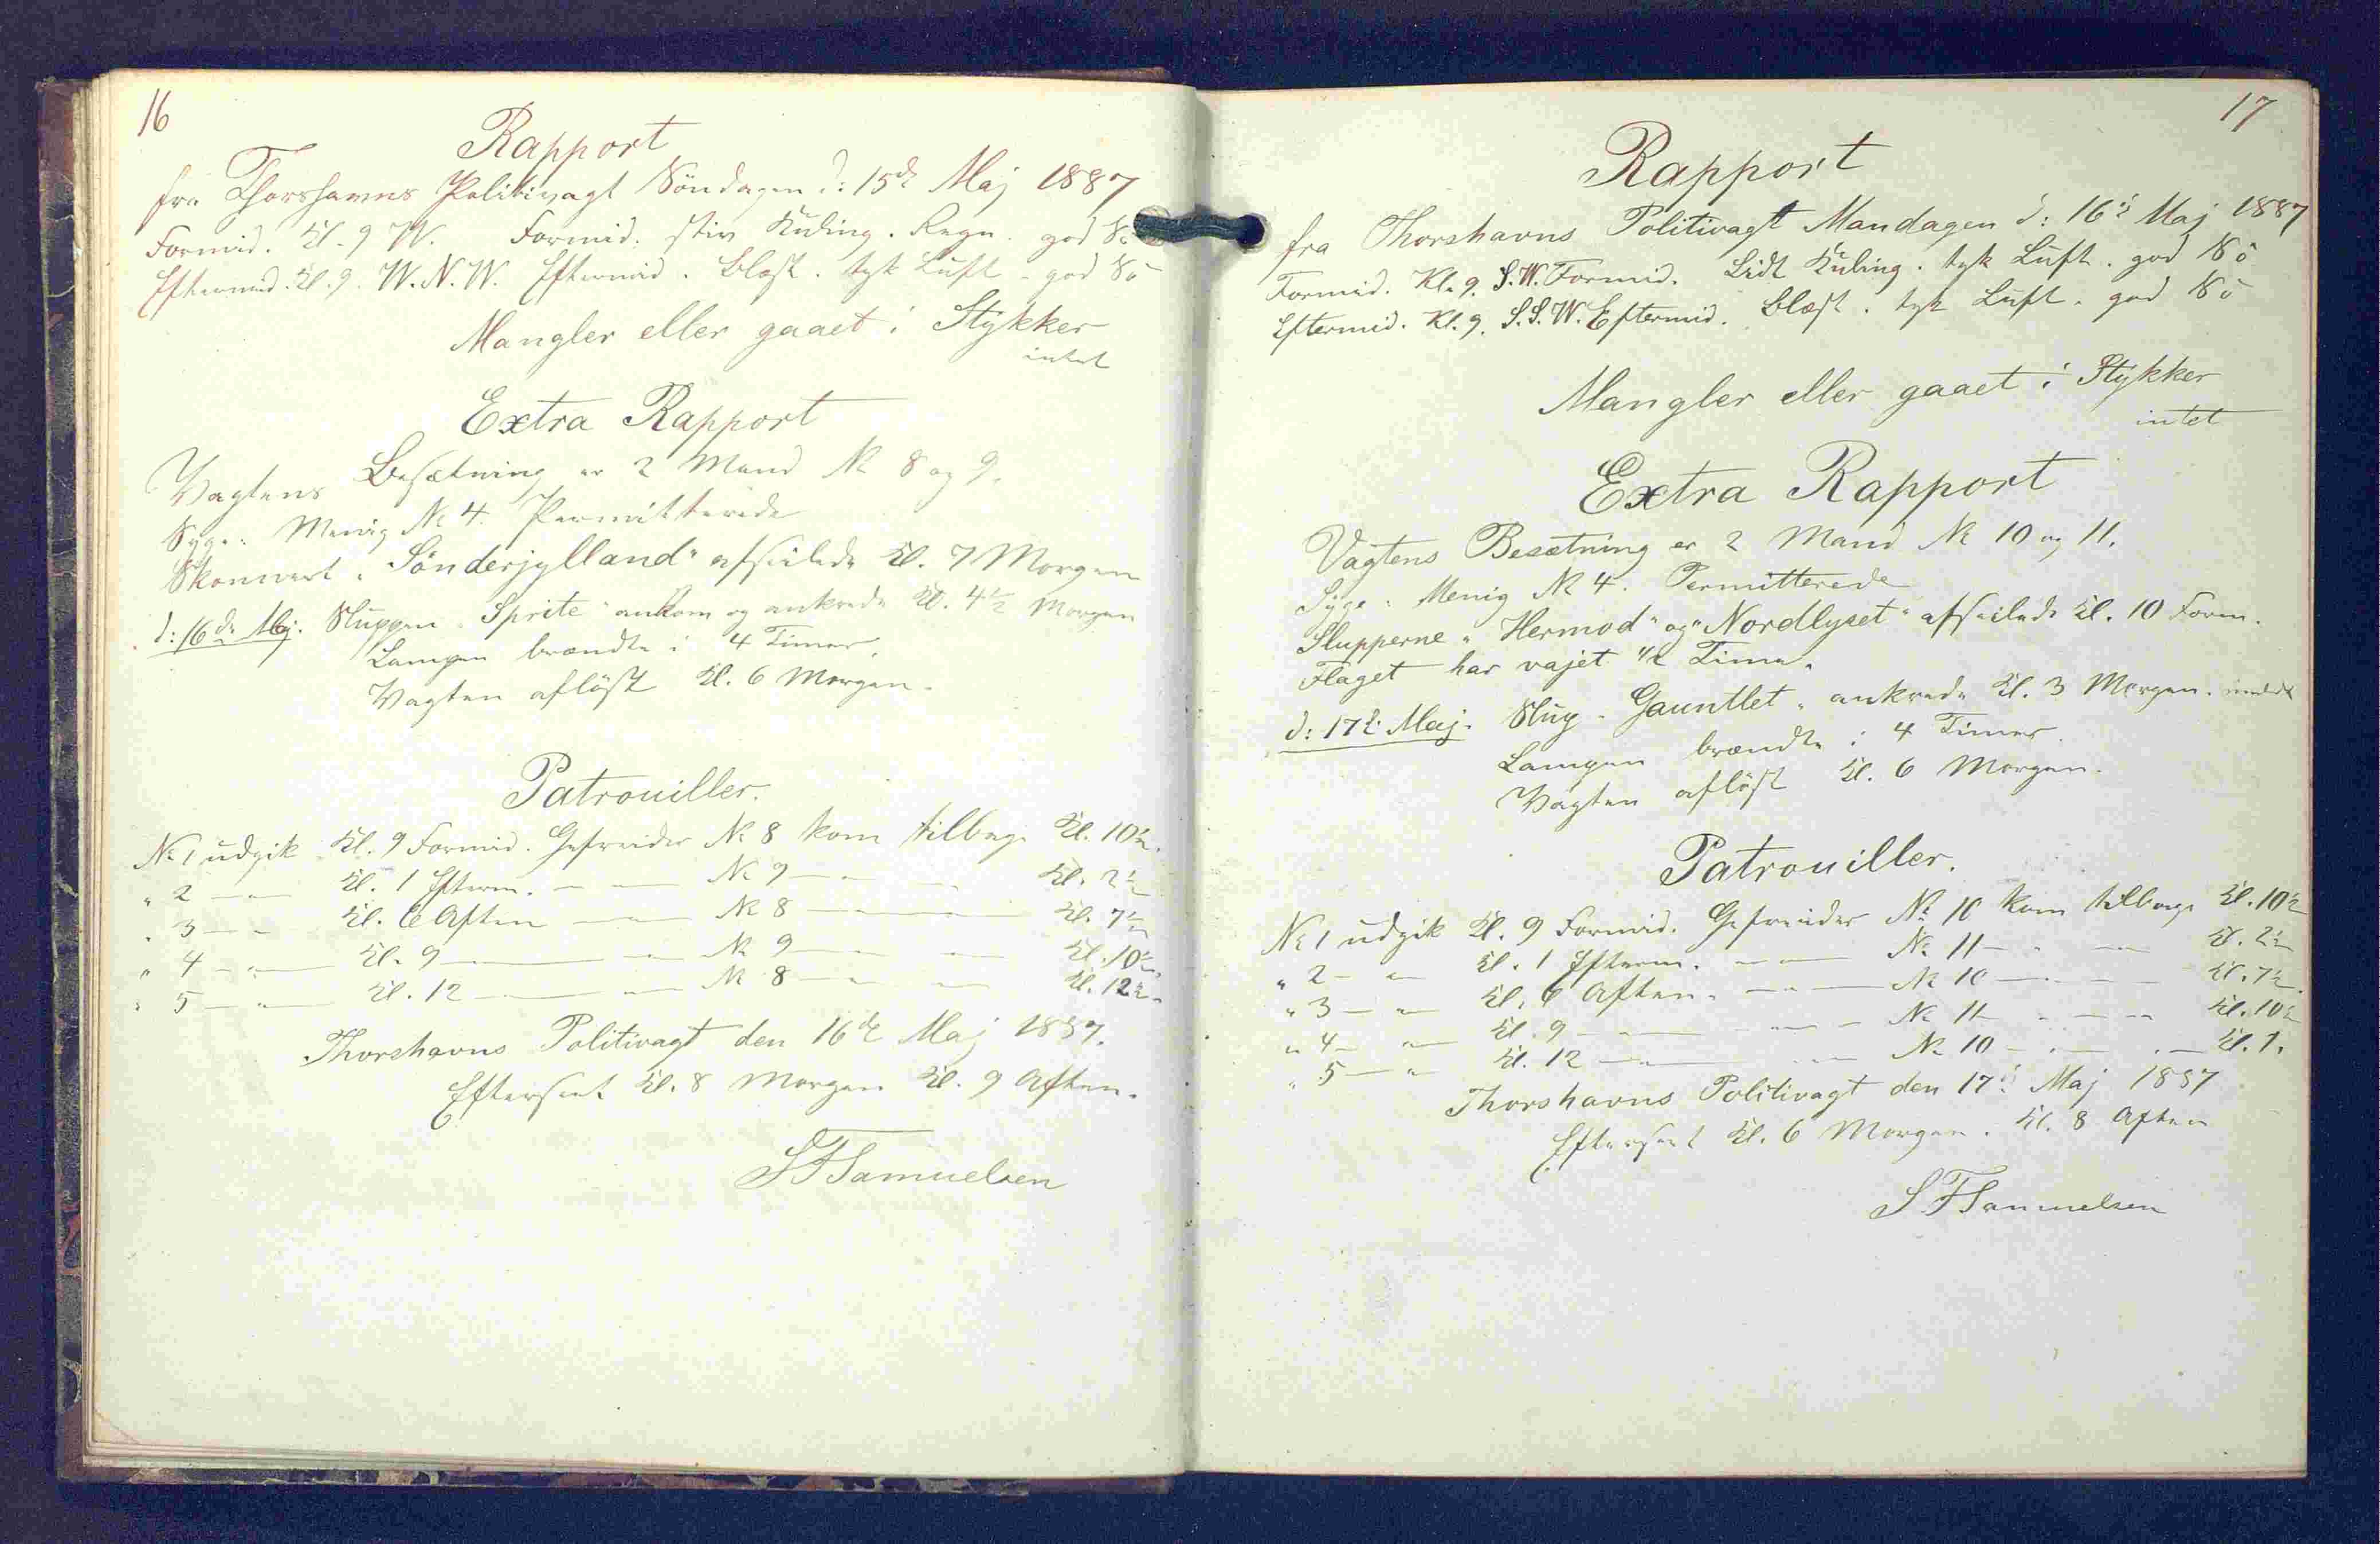 16
Rapport
fra Thorshavns Politivagt Söndagen d: 15de Maj 1887
Formid. Kl. 9 W. Formid. stiv Kuling. Regn. god
Eftermid. Kl. 9. W.N.W. Eftermid. Blæst. tyk Luft. god Sö
Mangler eller gaaet i Stykker
intet
Extra Rapport
Vagtens Besætning er 2 Mand № 8 og 9.
Syge: Menig № 4. Permitterede
Skonnert "Sönderjylland" afseilede Kl. 7 Morgen
d: 16de Maj. Sluppen "Sprite" ankom og ankrede Kl. 4½ Morgen
Lampen brændte i 4 Timer.
Vagten aflöst Kl. 6 Morgen.
Patrouiller.
№ 1 udgik Kl. 9 Formid. Gefreider № 8 kom tilbage Kl. 10½.
" 2 — " — Kl. 1 Efterm. — — № 9 — " — Kl. 2½
" 3 — " Kl. 6 Aften — — № 8 — — Kl. 7½
" 4 — " — Kl. 9 — — № 9 — — Kl. 10½.
" 5 — " — Kl. 12 — — № 8 — " — Kl. 12½.
Thorshavns Politivagt den 16de Maj 1887.
Efterseet Kl. 8 Morgen Kl. 9 Aften.
SFSamuelsen
17
Rapport
fra Thorshavns Politivagt Mandagen d: 16de Maj 1887
Formid. Kl. 9. S.W. Formid. Lidt Kuling. tyk Luft. god Sö
Eftermid. Kl. 9. S.S.W. Eftermid. Blæst. tyk Luft. god Sö
Mangler eller gaaet i Stykker
intet
Extra Rapport
Vagtens Besætning er 2 Mand № 10 og 11.
Syge: Menig № 4. Permitterede
Slupperne "Hermod" og "Nordlyset" afseilede Kl. 10 Form.
Flaget har vajet ½ Time.
d: 17de Maj. Slup "Gauntlet" ankrede Kl. 3 Morgen.
Lampen brændte i 4 Timer.
Vagten aflöst Kl. 6 Morgen.
Patrouiller.
№ 1 udgik Kl. 9 Formid. Gefreider № 10 kom tilbage Kl. 10½
" 2 — " Kl. 1 Efterm. — — № 11 — " — Kl. 2½
" 3 — " Kl. 6 Aften. — — № 10 — — Kl. 7½.
" 4 — " Kl. 9 — — № 11 — — Kl. 10½
" 5 — " Kl. 12 — — № 10 — — Kl. 1.
Thorshavns Politivagt den 17de Maj 1887
Efterseet Kl. 6 Morgen. Kl. 8 Aften
SFSamuelsen